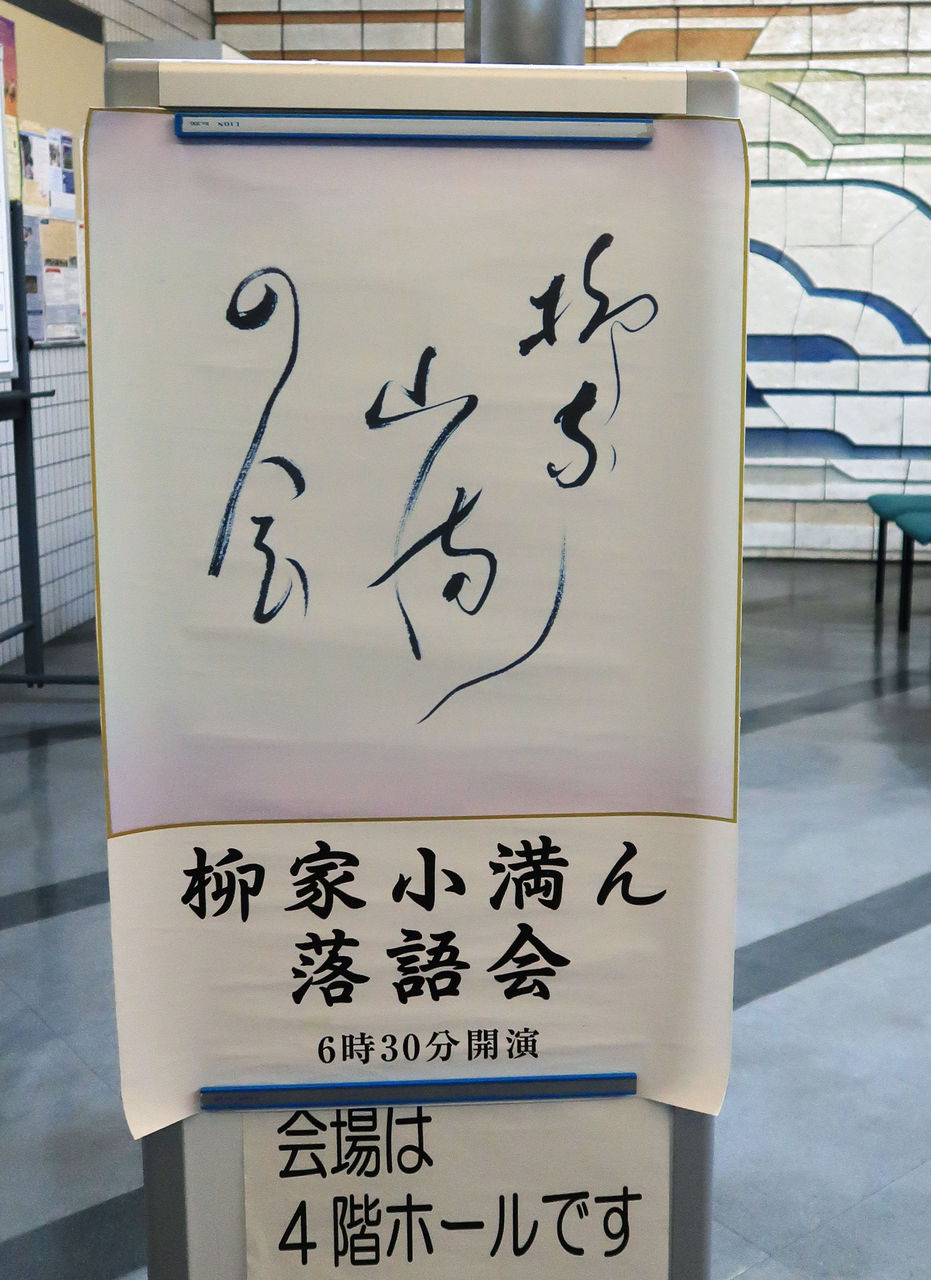 LION
柳家
小満ん
の会
柳家小満ん
落語会
6時30分開演
会場は
4階ホールです